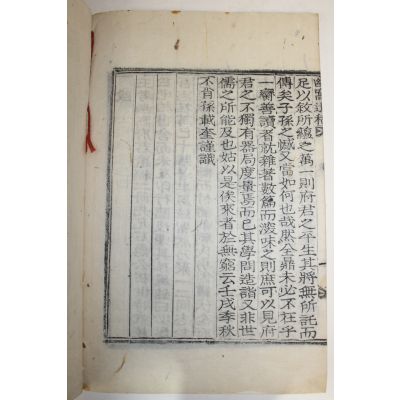 足以敘所蘊之萬一則府君之平生其將無所託而
傳矣子孫之慽又當如何也哉然全鼎未必不在乎
一臠善讀者就雜著數篇而深味之則庶可以見府
君之不獨有器局度量焉而已其學問造詣又非世
儒之所能及也姑以是俟來者於無窮云壬戌季秋
不肖孫載奎謹識